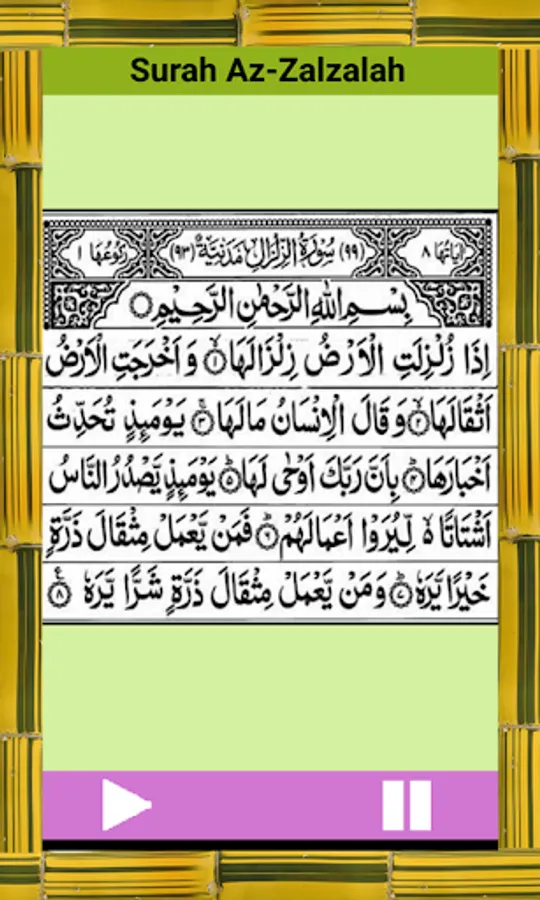 Surah Az-Zalzalah
اٰيَاتُهَا ٨ (٩٩) سُوْرَةُ الزِّلْزَالِ مَدَنِيَّةٌ (٩٣) رُكُوْعُهَا ١
بِسْمِ اللّٰهِ الرَّحْمٰنِ الرَّحِيْمِ
اِذَا زُلْزِلَتِ الْاَرْضُ زِلْزَالَهَا ۙ‏﴿۱﴾ وَ اَخْرَجَتِ الْاَرْضُ
اَثْقَالَهَا ۙ‏﴿۲﴾ وَ قَالَ الْاِنْسَانُ مَا لَهَا ۚ‏﴿۳﴾ يَوْمَئِذٍ تُحَدِّثُ
اَخْبَارَهَا ۙ‏﴿۴﴾ بِاَنَّ رَبَّكَ اَوْحٰى لَهَا ؕ‏﴿۵﴾ يَوْمَئِذٍ يَّصْدُرُ النَّاسُ
اَشْتَاتًا ۙ لِّيُرَوْا اَعْمَالَهُمْ ؕ‏﴿۶﴾ فَمَنْ يَّعْمَلْ مِثْقَالَ ذَرَّةٍ
خَيْرًا يَّرَهٗ ؕ‏﴿۷﴾ وَمَنْ يَّعْمَلْ مِثْقَالَ ذَرَّةٍ شَرًّا يَّرَهٗ ﴿۸﴾